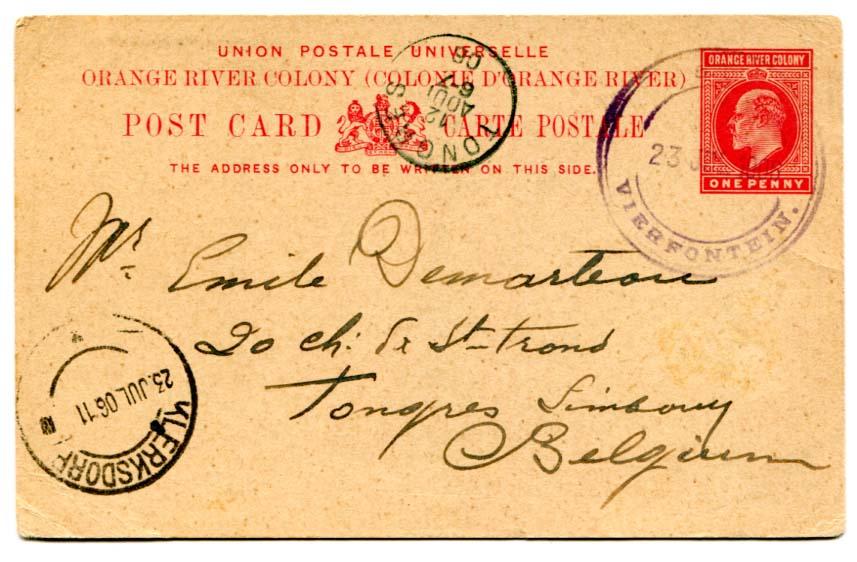 UNION POSTALE UNIVERSELLE
ORANGE RIVER COLONY (COLONIE D'ORANGE RIVER)
POST CARD CARTE POSTALE
THE ADDRESS ONLY TO BE WRITTEN ON THIS SIDE.
ORANGE RIVER COLONY
ONE PENNY
12
AOUT
06
23
VIERFONTEIN.
Mr. Emile Demarteau
20 ch: de St-trond
Tongres Limbourg
Belgium
KLERKSDORP
23.JUL 06.11